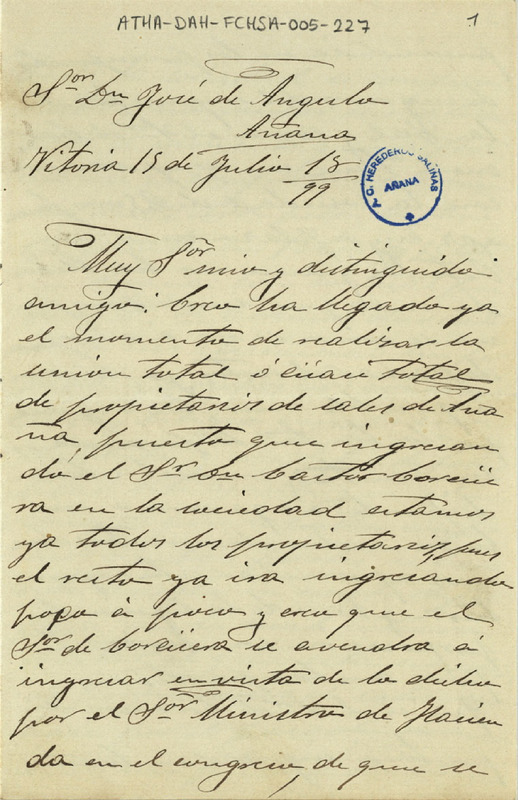 ATHA-DAH-FCHSA-005-227
1
Sor Dn José de Angulo
Añana
Vitoria 15 de Julio 18
99
C. HEREDEROS SALINAS
AÑANA
Muy Sōr mio y distinguido
amigo: Creo ha llegado ya
el momento de realizar la
union total ó cüasi total
de propietarios de sales de Aña
na, puesto que ingresan
do el Sr Dn Castor
ra en la sociedad estamos
ya todos los propietarios, pues
el resto ya ira ingresando
poco á poco y creo que el
Sor de se avendra á
ingresar en vista de lo dicho
por el Sor Ministro de Hacien
da en el congreso, de que se